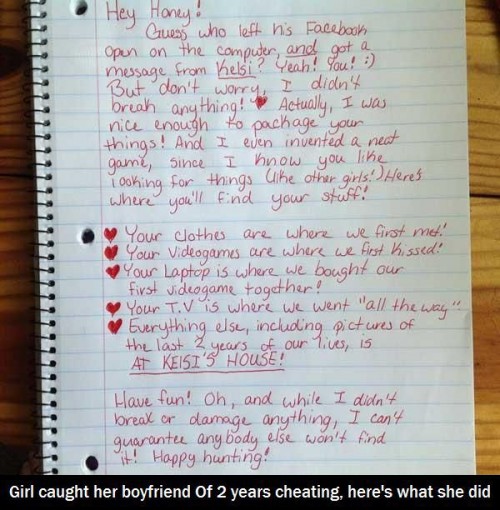 Hey Honey!
Guess who left his Facebook
open on the computer, and got a
message from Kelsi? Yeah! You! :)
But don't worry, I didn't
break anything! ♥ Actually, I was
nice enough to package your
things! And I even invented a neat
game, since I know you like
looking for things (like other girls!) Here's
where you'll find your stuff!
♥ Your clothes are where we first met!
♥ Your Videogames are where we first kissed!
♥ Your Laptop is where we bought our
first videogame together!
♥ Your T.V is where we went "all the way".
♥ Everything else, including pictures of
the last 2 years of our lives, is
AT KElSI'S HOUSE!
Have fun! Oh, and while I didn't
break or damage anything, I can't
guarantee anybody else won't find
it! Happy hunting!
Girl caught her boyfriend Of 2 years cheating, here's what she did